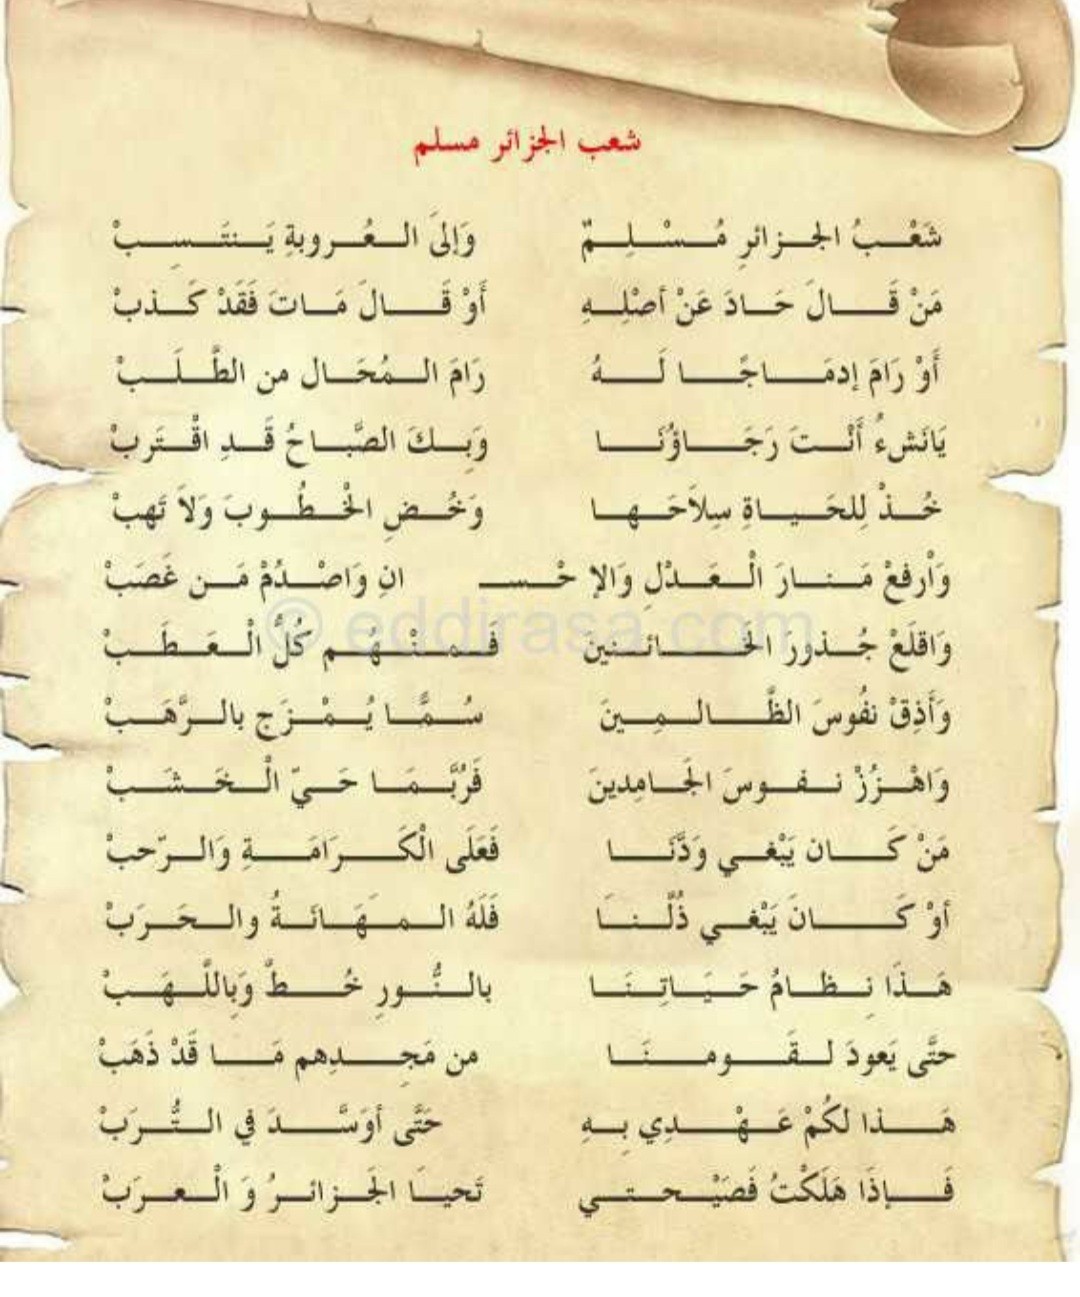 شعب الجزائر مسلم
شَعْبُ الجزائرِ مُسْلِمٌ وَإلىَ العُروبةِ يَنتَسِبْ
مَنْ قَالَ حَادَ عَنْ أصْلِهِ أَوْ قَالَ مَاتَ فَقَدْ كَذبْ
أَوْ رَامَ إدمَاجًا لَهُ رَامَ المُحَال من الطَّلَبْ
يَانَشءُ أَنْتَ رَجَاؤُنَا وَبِكَ الصَّباحُ قَدِ اقْتَربْ
خُذْ لِلحَياةِ سِلاَحَها وَخُضِ الْخطُوبَ وَلاَ تَهبْ
وَاْرفعْ مَنارَ الْعَدْلِ وَالإ حْس انِ وَاصْدُمْ مَن غَصَبْ
© eddirasa.com
وَاقلَعْ جُذورَ الخَائنين فَمنْهُم كُلُّ الْعَطَبْ
وَأَذِقْ نفُوسَ الظَّالمِينَ سُمًّا يُمْزَج بالرَّهَبْ
وَاهْزُزْ نفوسَ الجَامِدينَ فَرُبَّمَا حَيّ الْخَشَبْ
مَنْ كَان يَبْغي وَدَّنَا فَعَلَى الْكَرَامَةِ وَالرّحبْ
أوْ كَانَ يَبْغي ذُلَّنَا فَلَهُ المهَانَةُ والحَرَبْ
هَذَا نِظامُ حَيَاتِنَا بالنُّورِ خُطّْ وَباللَّهَبْ
حتَّى يَعودَ لقَومنَا من مَجِدِهم مَا قَدْ ذَهَبْ
هَذا لكُمْ عَهْدِي بِهِ حَتَّى أوَسَّدَ في التُّرَبْ
فَإذَا هَلَكْتُ فَصَيْحتي تَحيا الجَزائرُ وَ الْعرَبْ